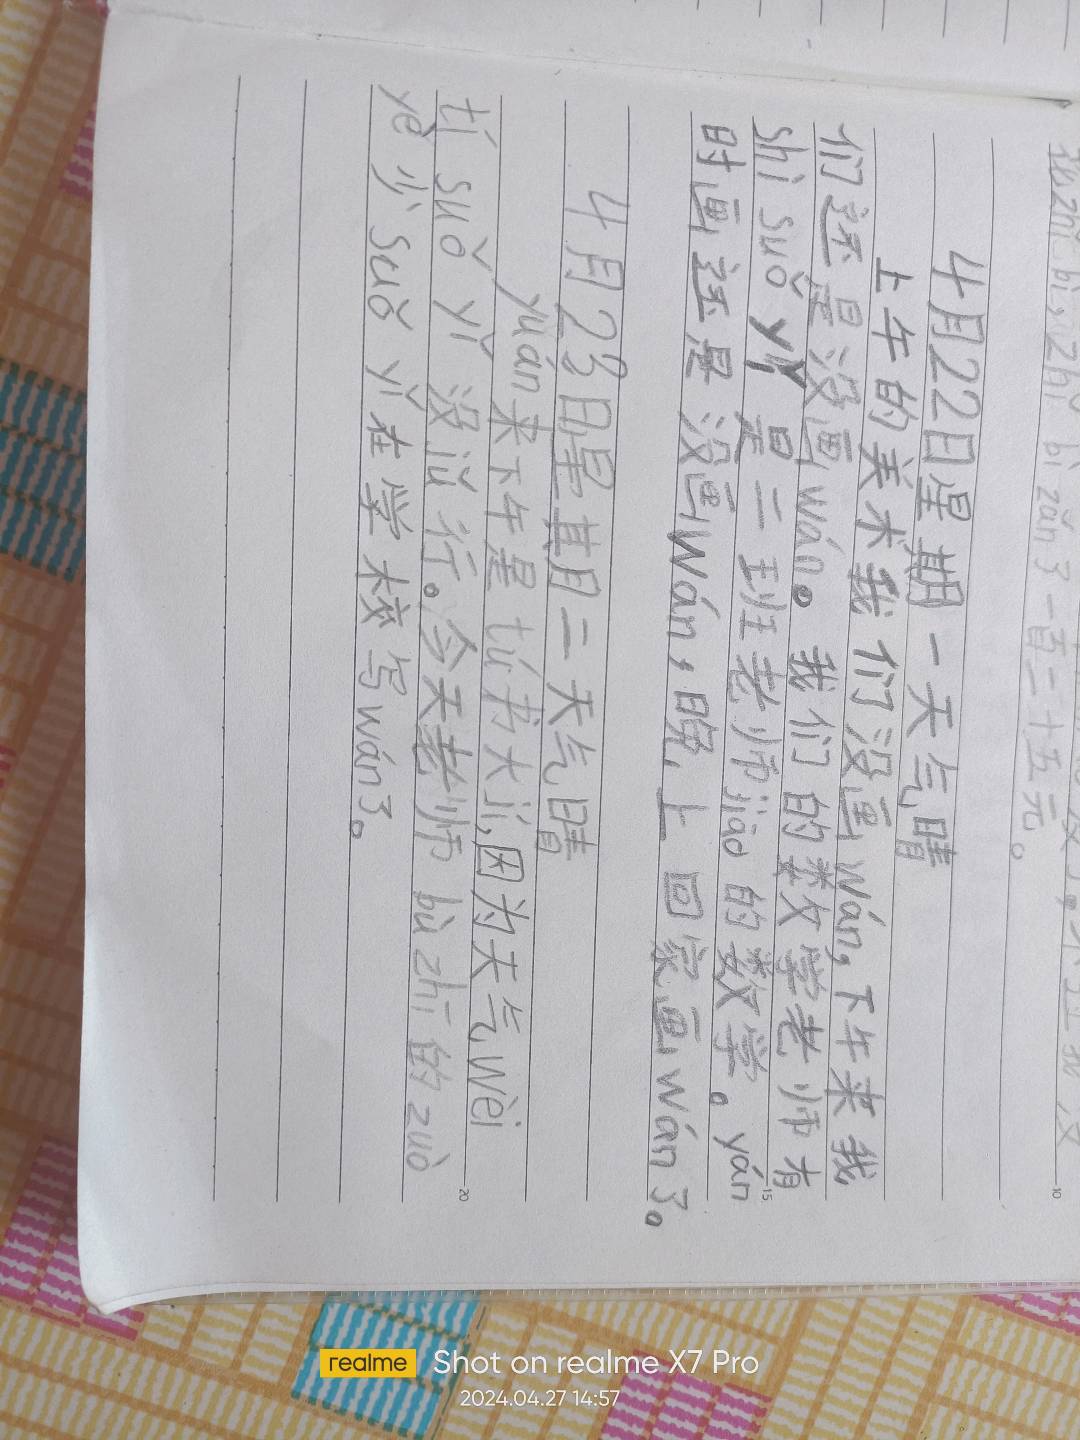 一百二十五元。
10
4月22日星期一天气晴
上午的美术我们没画wán,下午来我
们还是没画wán。我们的数学老师有
shì suǒ yǐ 是二班老师jiāo的数学。yán
15
时画还是没画wán,晚上回家画wán了。
4月23日星期二天气晴
yuán来下午是tú书大jí,因为天气wèi
tí suǒ yǐ 没jǔ行。今天老师bù zhì的zuò
20
yè 少suǒ yǐ在学校写wán了。
realme Shot on realme X7 Pro
2024.04.27 14:57